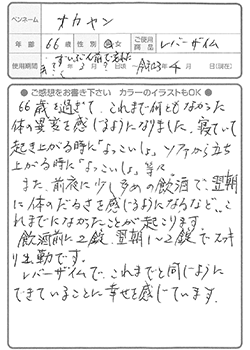 ペンネーム オカヤン
年齢 66歳 性別 男・女 ご使用商品 レバーザイム
使用期間 ずいぶん前で忘れた 年 月?~ 令和3年4月 日(現在)
●ご感想をお書き下さい カラーのイラストもOK●
66歳を過ぎて、これまで何ともなかった
体の異変を感じるようになりました。寝ていて
起き上がる時に「よっこいしょ」、ソファから立ち
上がる時に「よっこいしょ」等々
また、前夜に少し多めの飲酒で、翌朝
に体のだるさを感じるようになるなど、こ
れまでになかったことが起こります。
飲酒前に2錠、翌朝1~2錠でスッキ
リ出勤です。
レバーザイムで、これまでと同じように
できていることに幸せを感じています。